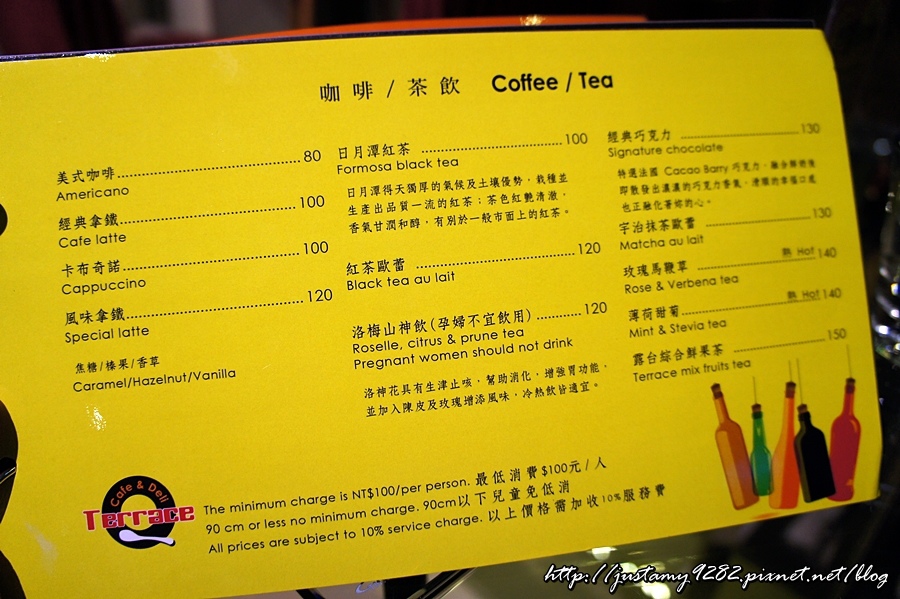 咖啡/茶飲 Coffee / Tea
美式咖啡 80
Americano
經典拿鐵 100
Cafe latte
卡布奇諾 100
Cappuccino
風味拿鐵 120
Special latte
焦糖/榛果/香草
Caramel/Hazelnut/Vanilla
日月潭紅茶 100
Formosa black tea
日月潭得天獨厚的氣候及土壤優勢，栽種並
生產出品質一流的紅茶；茶色紅艷清澈，
香氣甘潤和醇，有別於一般市面上的紅茶。
紅茶歐蕾 120
Black tea au lait
洛梅山神飲(孕婦不宜飲用) 120
Roselle, citrus & prune tea
Pregnant women should not drink
洛神花具有生津止咳，幫助消化，增強胃功能，
並加入陳皮及玫瑰增添風味，冷熱飲皆適宜。
經典巧克力 130
Signature chocolate
特選法國 Cacao Barry 巧克力，融合鮮奶後
即散發出濃濃的巧克力香氣，滑順的幸福口感
也正融化著妳的心。
宇治抹茶歐蕾 130
Matcha au lait
玫瑰馬鞭草 熱 Hot 140
Rose & Verbena tea
薄荷甜菊 熱 Hot 140
Mint & Stevia tea
露台綜合鮮果茶 150
Terrace mix fruits tea
Cafe & Deli
Terrace
The minimum charge is NT$100/per person. 最低消費$100元/人
90 cm or less no minimum charge. 90cm以下兒童免低消
All prices are subject to 10% service charge. 以上價格需加收10%服務費
http://justamy9282.pixnet.net/blog